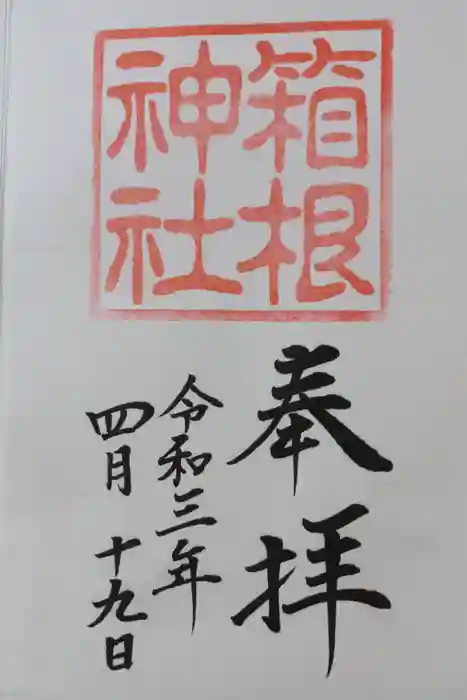 箱根
神社
奉拝
令和三年
四月十九日